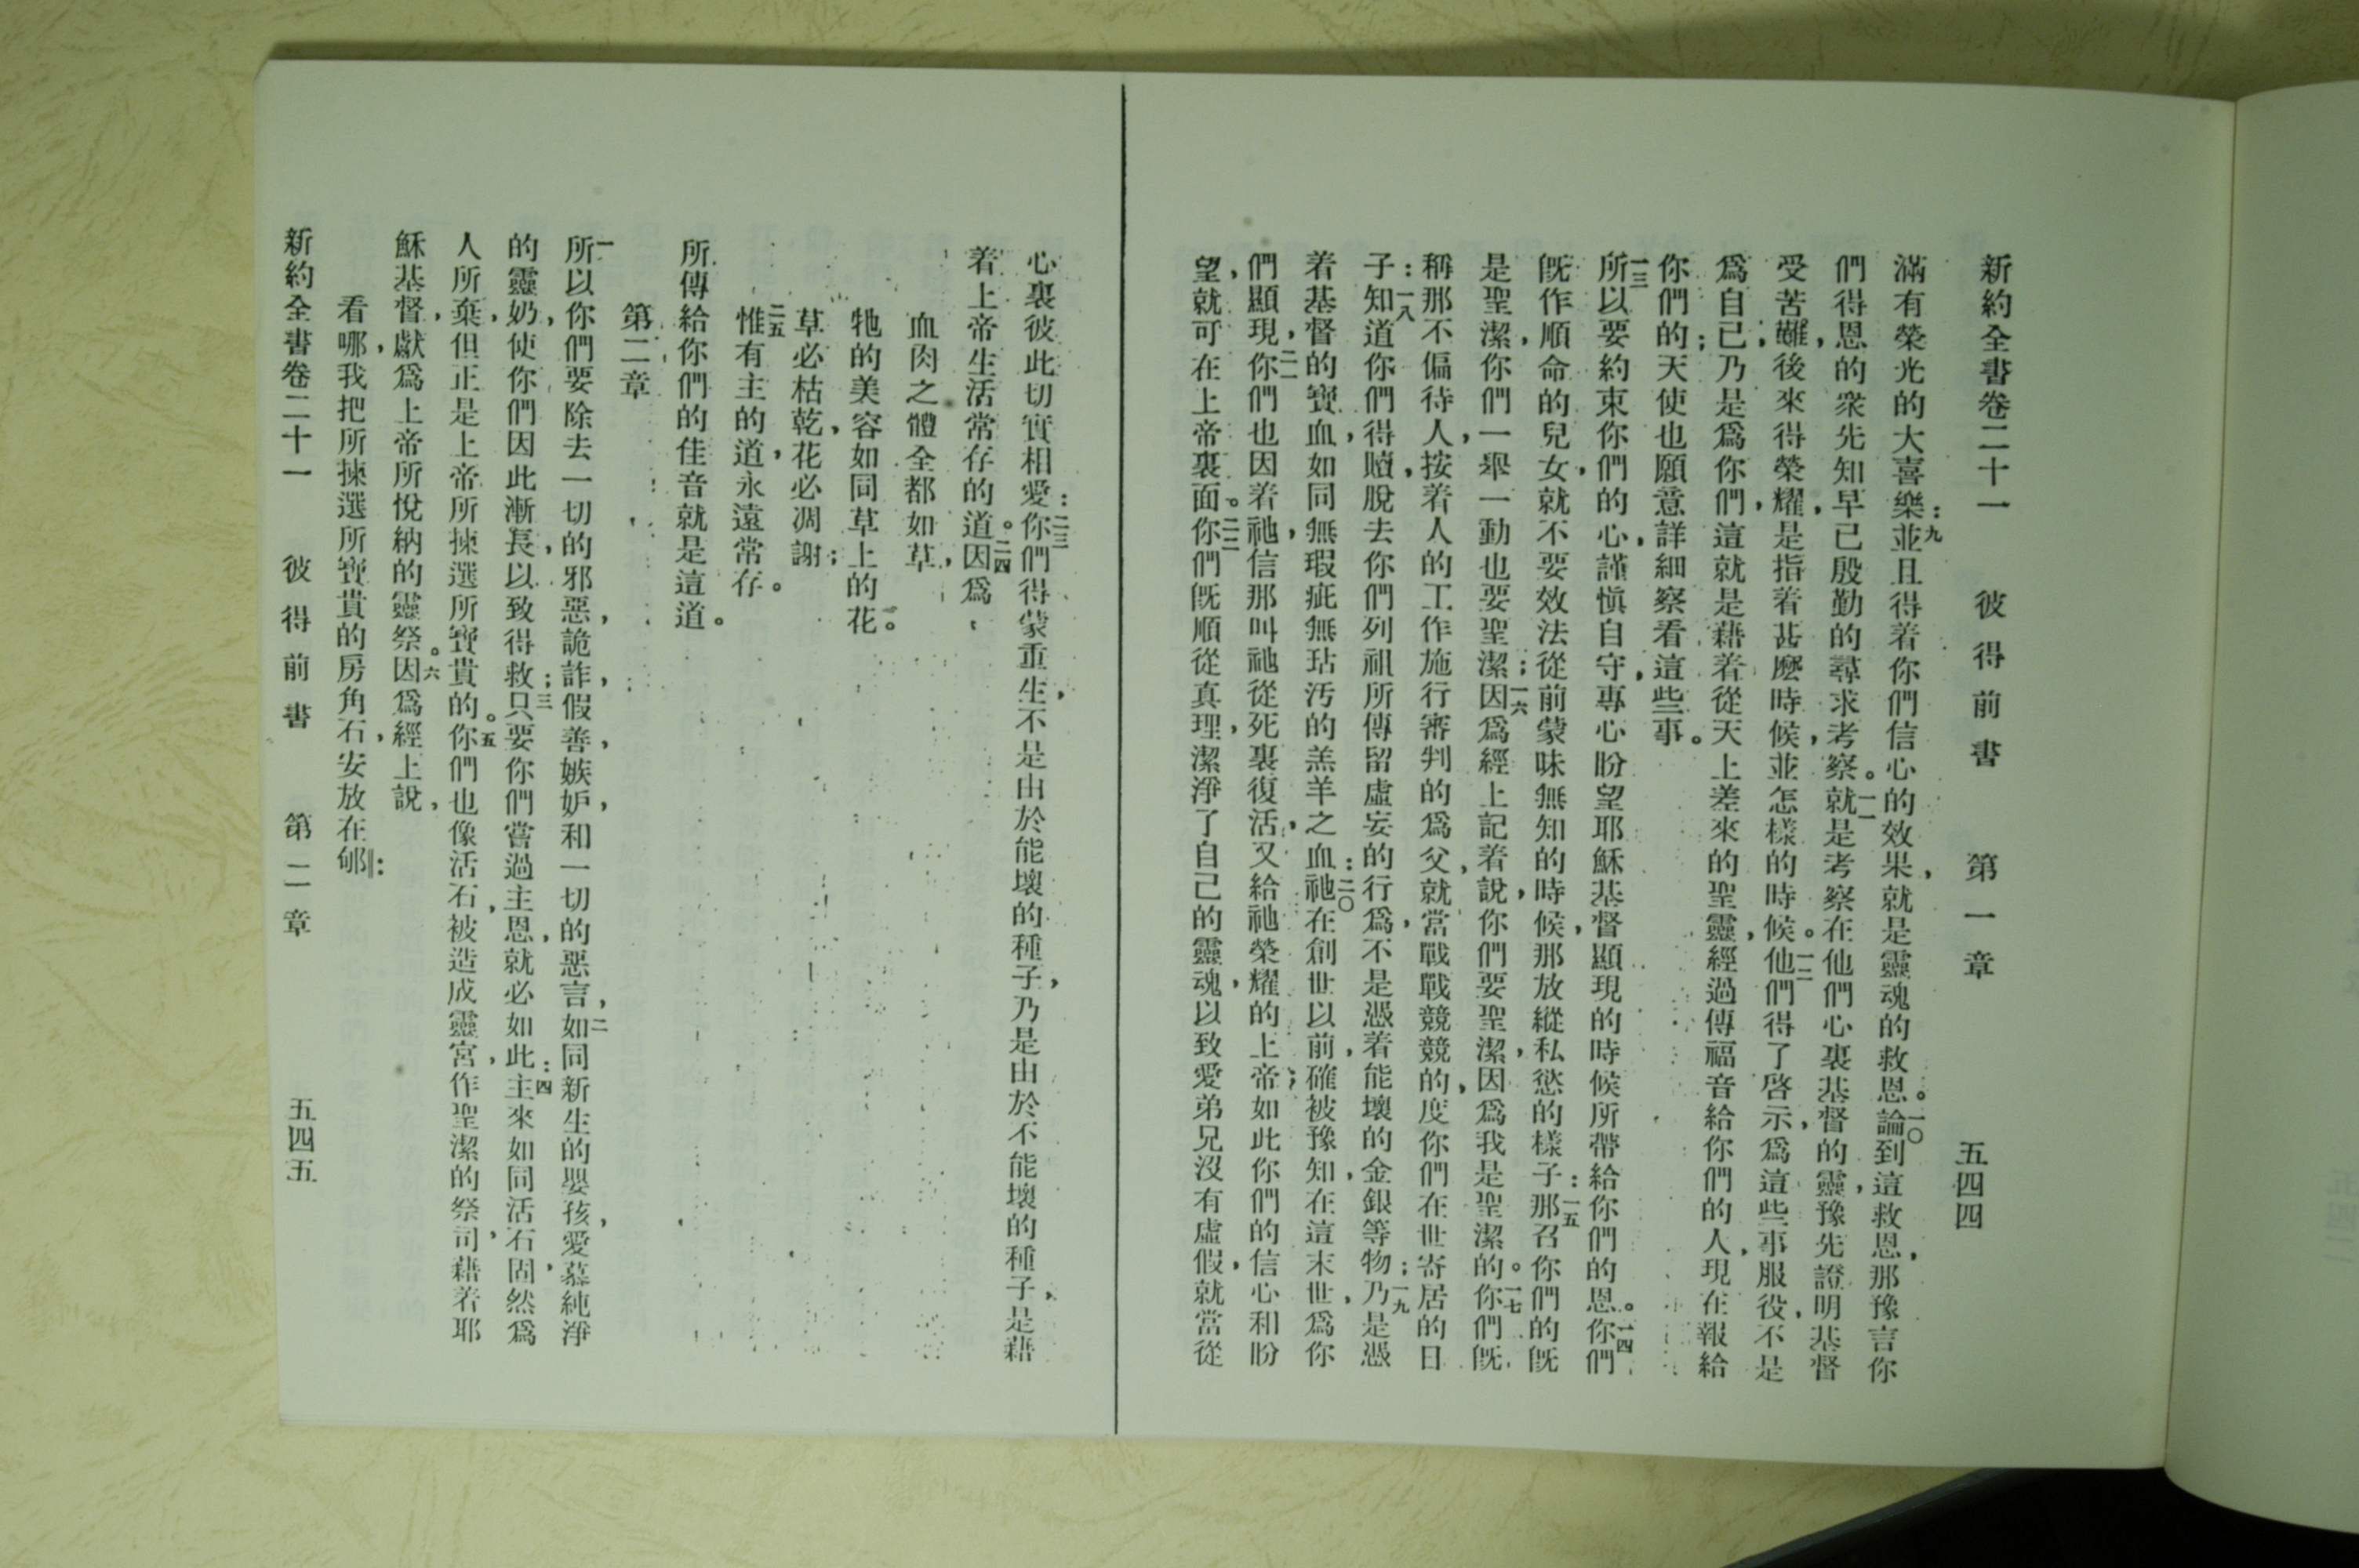 新約全書卷二十一 彼得前書 第一章 五四四
滿有榮光的大喜樂：九並且得着你們信心的效果，就是靈魂的救恩。一〇論到這救恩，那豫言你
們得恩的衆先知早已殷勤的尋求考察。一一就是考察在他們心裏基督的靈，豫先證明基督
受苦難，後來得榮耀，是指着甚麼時候，並怎樣的時候。一二他們得了啓示，爲這些事服役，不是
爲自己，乃是爲你們，這就是藉着從天上差來的聖靈，經過傳福音給你們的人，現在報給
你們的；天使也願意詳細察看這些事。
一三所以要約束你們的心，謹愼自守，專心盼望耶穌基督顯現的時候所帶給你們的恩。一四你們
旣作順命的兒女，就不要效法從前蒙昧無知的時候，那放縱私慾的樣子：一五那召你們的旣
是聖潔，你們一舉一動也要聖潔；一六因爲經上記着說，你們要聖潔，因爲我是聖潔的。一七你們旣
稱那不偏待人，按着人的工作施行審判的爲父，就當戰戰競競的，度你們在世寄居的日
子：一八知道你們得贖，脫去你們列祖所傳留虛妄的行爲，不是憑着能壞的金銀等物；一九乃是憑
着基督的寶血，如同無瑕疵無玷汚的羔羊之血：二〇祂在創世以前，確被豫知，在這末世，爲你
們顯現，二一你們也因着祂，信那叫祂從死裏復活，又給祂榮耀的上帝；如此你們的信心和盼
望，就可在上帝裏面。二二你們旣順從真理，潔淨了自己的靈魂，以致愛弟兄沒有虛假，就當從
心裏彼此切實相愛：二三你們得蒙重生，不是由於能壞的種子，乃是由於不能壞的種子，是藉
着上帝生活常存的道。二四因爲，
血肉之體全都如草，
牠的美容如同草上的花。
草必枯乾，花必凋謝；
二五惟有主的道，永遠常存。
所傳給你們的佳音就是這道。
第二章
一所以你們要除去一切的邪惡，詭詐，假善，嫉妒，和一切的惡言，二如同新生的嬰孩，愛慕純淨
的靈奶，使你們因此漸長，以致得救；三只要你們嘗過主恩，就必如此：四主來如同活石，固然爲
人所棄，但正是上帝所揀選所寶貴的。五你們也像活石，被造成靈宮，作聖潔的祭司，藉着耶
穌基督，獻爲上帝所悅納的靈祭。六因爲經上說，
看哪，我把所揀選所寶貴的房角石，安放在郇：
新約全書卷二十一 彼得前書 第二章 五四五